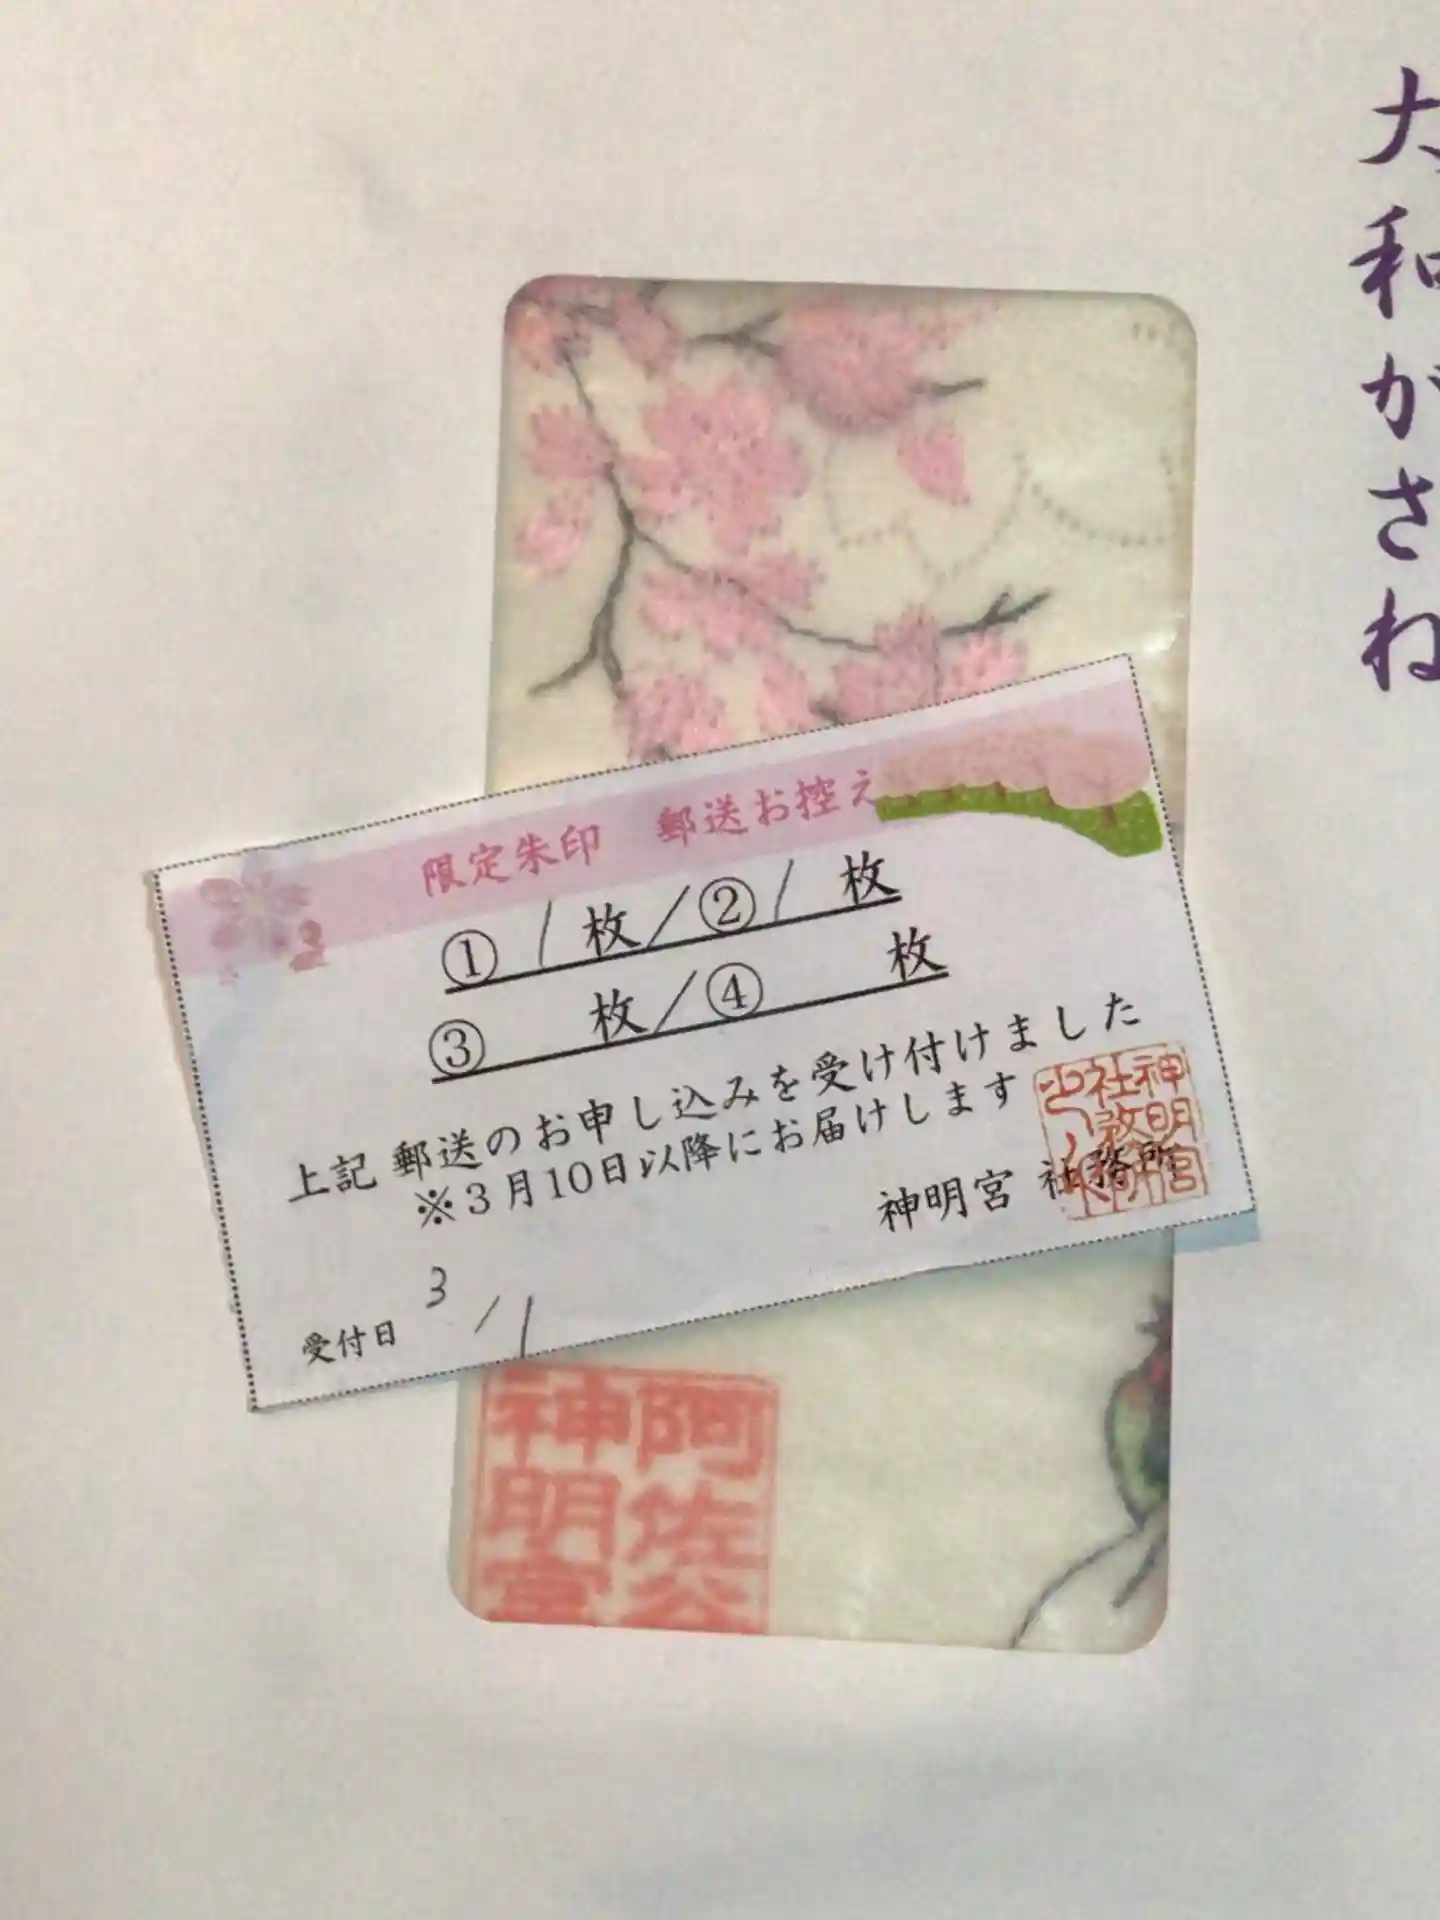 大和がさね
限定朱印　郵送お控え
① 1 枚／② 1 枚
③ 枚／④ 枚
上記 郵送のお申し込みを受け付けました
※3月10日以降にお届けします
神明宮 社務所
神明宮
社務所
受付日 3/1
阿佐谷
神明宮